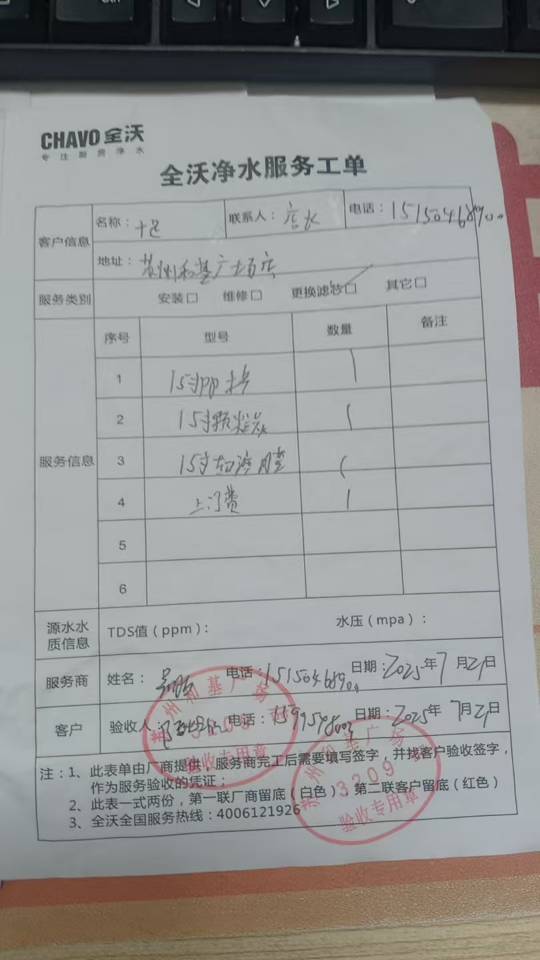 CHAVO 全沃
专注厨房净水
全沃净水服务工单
客户信息
名称： 联系人：店长 电话：
地址：苏州和基广场百店
服务类别 安装□ 维修□ 更换滤芯□ 其它□
服务信息
序号 型号 数量 备注
1 15寸PP棉 1
2 15寸颗粒炭 1
3 15寸超滤膜 1
4 上门费 1
5
6
源水水质信息 TDS值（ppm）： 水压（mpa）：
服务商 姓名： 电话： 日期：2025年7月21日
客户 验收人： 电话： 日期：2025年7月21日
注：1、此表单由厂商提供，服务商完工后需要填写签字，并找客户验收签字，
作为服务验收的凭证；
2、此表一式两份，第一联厂商留底（白色） 第二联客户留底（红色）
3、全沃全国服务热线：4006121926
苏州和基广场
3209
验收专用章
苏州和基广场
3209
验收专用章